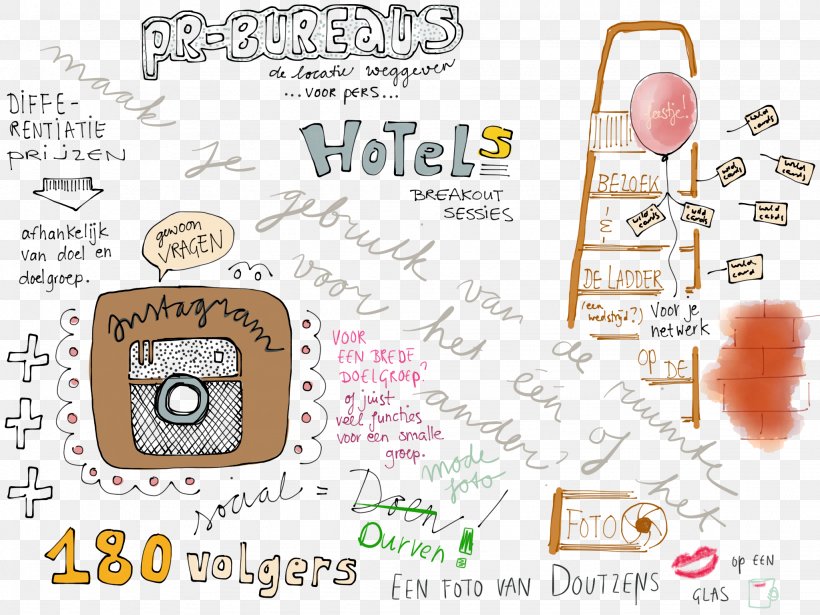 PR-BUREAUS
de locatie weggeven
...VOOR PERS...
DIFFE-
RENTIATIE
PRIJZEN
afhankelijk
van doel en
doelgroep.
HOTELS
BREAKOUT
SESSIES
maak
je
gebruik van
voor het één of
ander?
de ruimte
of het
gewoon
VRAGEN
Instagram
+
+
+
social = Doen!
Durven!
180 volgers
VOOR
EEN BREDE
DOELGROEP?
of juist
veel functies
voor een smalle
groep.
mode
foto
feestje!
BEZOEK
&
DE LADDER
(een
wedstrijd?)
Voor je
netwerk
OP DE
wild
cards
wild
cards
wild
cards
wild
cards
wild
cards
wild
cards
wild
card
FOTO
EEN FOTO VAN DOUTZENS
OP EEN
GLAS